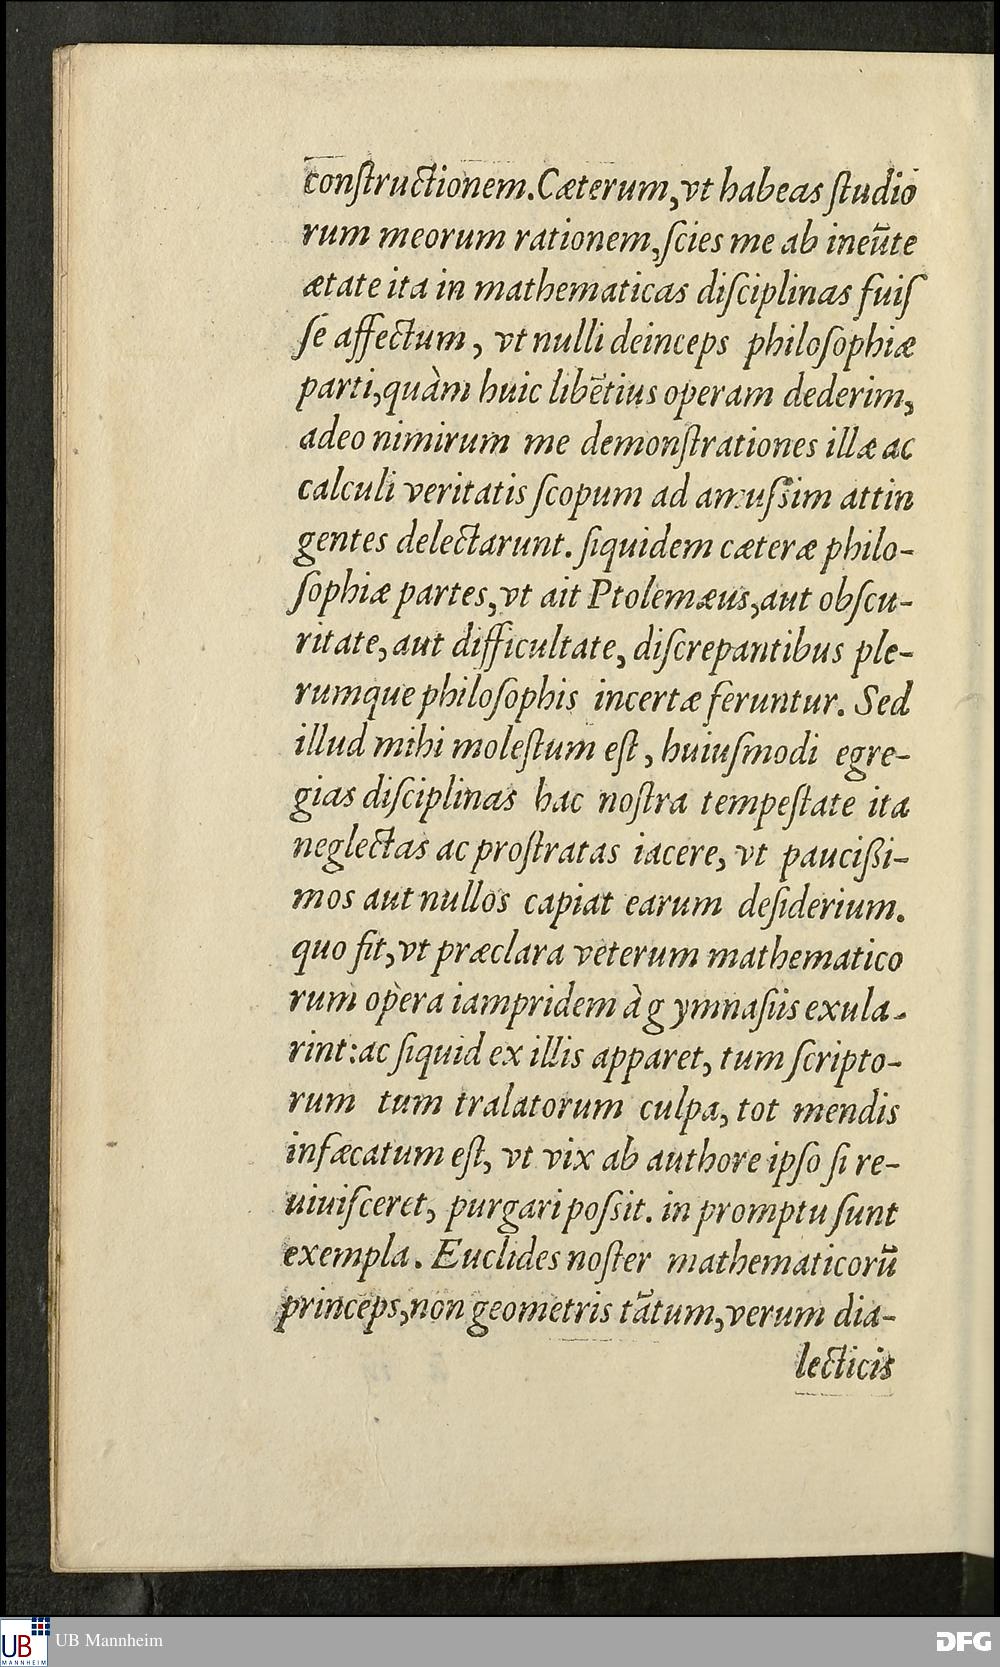 conſtructionem. Cæterum, vt habeas ſtudio
rum meorum rationem, ſcies me ab ineūte
ætate ita in mathematicas diſciplinas fuiſ
ſe affectum, vt nulli deinceps philoſophiæ
parti, quàm huic libētius operam dederim,
adeo nimirum me demonſtrationes illæ ac
calculi veritatis ſcopum ad amuſsim attin
gentes delectarunt. ſiquidem cæteræ philo-
ſophiæ partes, vt ait Ptolemæus, aut obſcu-
ritate, aut difficultate, diſcrepantibus ple-
rumque philoſophis incertæ feruntur. Sed
illud mihi moleſtum eſt, huiuſmodi egre-
gias diſciplinas hac noſtra tempeſtate ita
neglectas ac proſtratas iacere, vt paucißi-
mos aut nullos capiat earum deſiderium.
quo fit, vt præclara veterum mathematico
rum opera iampridem à gymnaſiis exula-
rint: ac ſiquid ex illis apparet, tum ſcripto-
rum tum tralatorum culpa, tot mendis
infæcatum eſt, vt vix ab authore ipſo ſi re-
uiuiſceret, purgari poſsit. in promptu ſunt
exempla. Euclides noſter mathematicorū
princeps, non geometris tātum, verum dia-
lecticis
UB MANNHEIM
UB Mannheim
DFG